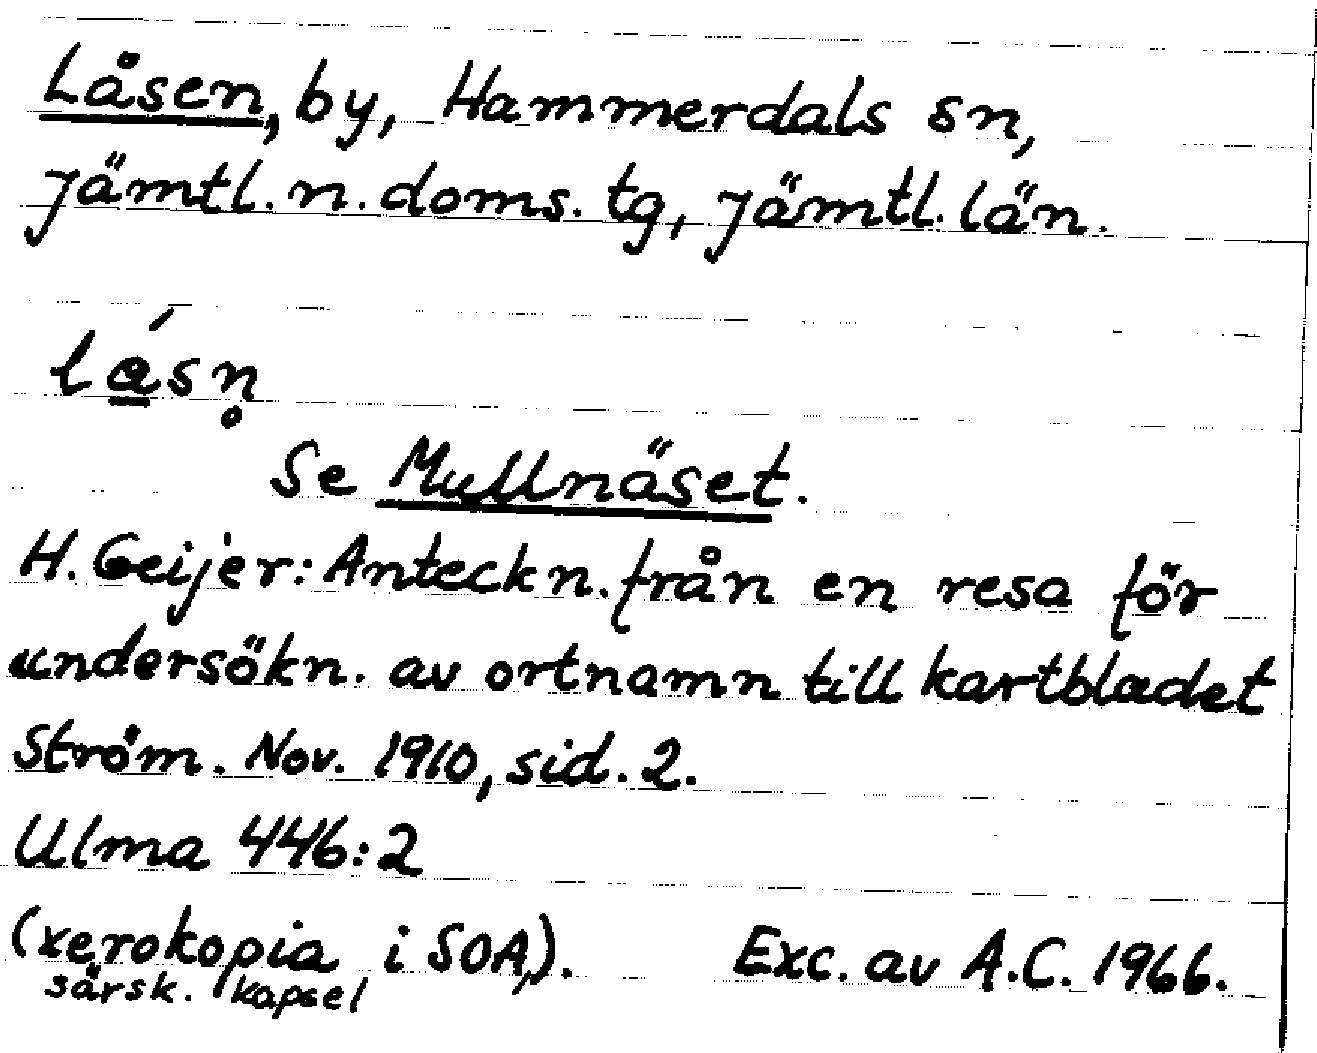 Låsen, by, Hammerdals sn,
Jämtl. n. doms. tg, Jämtl. län.
lá̱sn̥
Se Mullnäset.
H. Geijer: Anteckn. från en resa för
undersökn. av ortnamn till kartbladet
Ström. Nov. 1910, sid. 2.
Ulma 446:2
(xerokopia i SOA,). Exc. av A.C. 1966.
särsk. kapsel